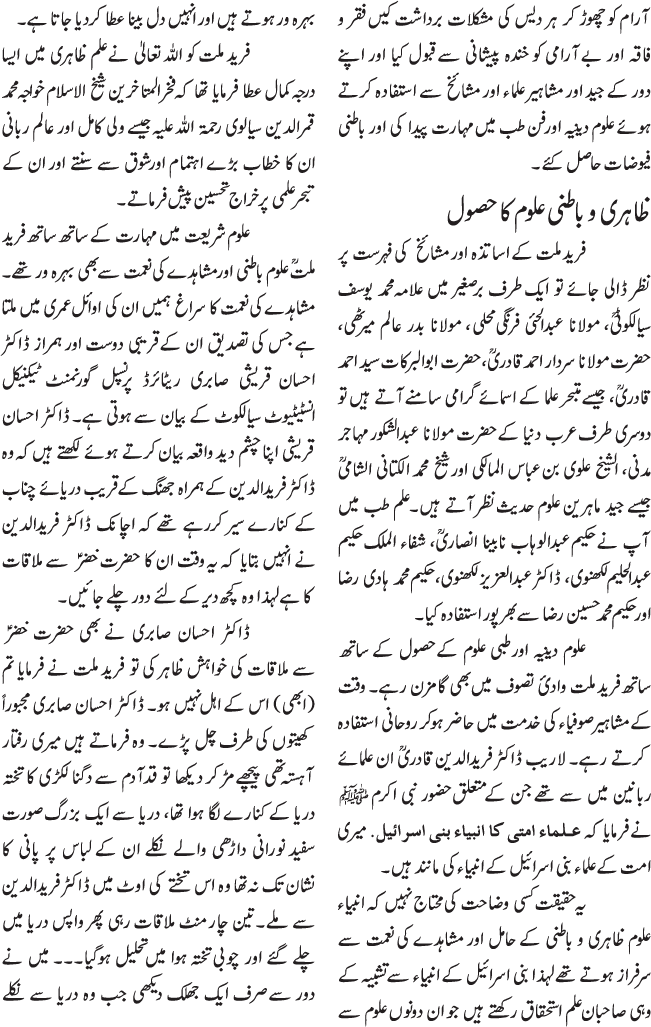 آرام کو چھوڑ کر ہر دیس کی مشکلات برداشت کیں فقر و
فاقہ اور بے آرامی کو خندہ پیشانی سے قبول کیا اور اپنے
دور کے جید اور مشاہیر علماء اور مشائخ سے استفادہ کرتے
ہوئے علوم دینیہ اور فن طب میں مہارت پیدا کی اور باطنی
فیوضات حاصل کئے۔
ظاہری و باطنی علوم کا حصول
فرید ملت کے اساتذہ اور مشائخ کی فہرست پر
نظر ڈالی جائے تو ایک طرف برصغیر میں علامہ محمد یوسف
سیالکوٹیؒ، مولانا عبدالحئی فرنگی محلی، مولانا بدر عالم میرٹھی،
حضرت مولانا سردار احمد قادریؒ، حضرت ابوالبرکات سید احمد
قادریؒ، جیسے متبحر علما کے اسمائے گرامی سامنے آتے ہیں تو
دوسری طرف عرب دنیا کے حضرت مولانا عبدالشکور مہاجر
مدنی، الشیخ علوی بن عباس المالکی اور شیخ محمد الکتانی الشامیؒ
جیسے جید ماہرین علوم حدیث نظر آتے ہیں۔ علم طب میں
آپ نے حکیم عبدالوہاب نابینا انصاریؒ، شفاء الملک حکیم
عبدالحلیم لکھنوی، ڈاکٹر عبدالعزیز لکھنوی، حکیم محمد ہادی رضا
اور حکیم محمد حسین رضا سے بھرپور استفادہ کیا۔
علوم دینیہ اور طبی علوم کے حصول کے ساتھ
ساتھ فرید ملت وادیٔ تصوف میں بھی گامزن رہے۔ وقت
کے مشاہیر صوفیاء کی خدمت میں حاضر ہوکر روحانی استفادہ
کرتے رہے۔ لاریب ڈاکٹر فریدالدین قادریؒ ان علمائے
ربانین میں سے تھے جن کے متعلق حضور نبی اکرم ﷺ
نے فرمایا کہ علماء امتی کا انبیاء بنی اسرائیل. میری
امت کے علماء بنی اسرائیل کے انبیاء کی مانند ہیں۔
یہ حقیقت کسی وضاحت کی محتاج نہیں کہ انبیاء
علوم ظاہری و باطنی کے حامل اور مشاہدے کی نعمت سے
سرفراز ہوتے تھے لہذا بنی اسرائیل کے انبیاء سے تشبیہ کے
وہی صاحبان علم استحقاق رکھتے ہیں جو ان دونوں علوم سے
بہرہ ور ہوتے ہیں اور انہیں دل بینا عطا کردیا جاتا ہے۔
فرید ملت کو اللہ تعالیٰ نے علم ظاہری میں ایسا
درجہ کمال عطا فرمایا تھا کہ فخر المتاخرین شیخ الاسلام خواجہ محمد
قمرالدین سیالوی رحمۃ اللہ علیہ جیسے ولی کامل اور عالم ربانی
ان کا خطاب بڑے اہتمام اور شوق سے سنتے اور ان کے
تبحر علمی پر خراج تحسین پیش فرماتے۔
علوم شریعت میں مہارت کے ساتھ ساتھ فرید
ملتؒ علوم باطنی اور مشاہدے کی نعمت سے بھی بہرہ ور تھے۔
مشاہدے کی نعمت کا سراغ ہمیں ان کی اوائل عمری میں ملتا
ہے جس کی تصدیق ان کے قریبی دوست اور ہمراز ڈاکٹر
احسان قریشی صابری ریٹائرڈ پرنسپل گورنمنٹ ٹیکنیکل
انسٹیٹیوٹ سیالکوٹ کے بیان سے ہوتی ہے۔ ڈاکٹر احسان
قریشی اپنا چشم دید واقعہ بیان کرتے ہوئے لکھتے ہیں کہ وہ
ڈاکٹر فریدالدین کے ہمراہ جھنگ کے قریب دریائے چناب
کے کنارے سیر کررہے تھے کہ اچانک ڈاکٹر فریدالدین
نے انہیں بتایا کہ یہ وقت ان کا حضرت خضرؑ سے ملاقات
کا ہے لہذا وہ کچھ دیر کے لئے دور چلے جائیں۔
ڈاکٹر احسان صابری نے بھی حضرت خضرؑ
سے ملاقات کی خواہش ظاہر کی تو فرید ملت نے فرمایا تم
(ابھی) اس کے اہل نہیں ہو۔ ڈاکٹر احسان صابری مجبوراً
کھیتوں کی طرف چل پڑے۔ وہ فرماتے ہیں میری رفتار
آہستہ تھی پیچھے مڑ کر دیکھا تو قد آدم سے دگنا لکڑی کا تختہ
دریا کے کنارے لگا ہوا تھا، دریا سے ایک بزرگ صورت
سفید نورانی داڑھی والے نکلے ان کے لباس پر پانی کا
نشان تک نہ تھا وہ اس تختے کی اوٹ میں ڈاکٹر فریدالدین
سے ملے۔ تین چار منٹ ملاقات رہی پھر واپس دریا میں
چلے گئے اور چوبی تختہ ہوا میں تحلیل ہوگیا۔۔۔ میں نے
دور سے صرف ایک جھلک دیکھی جب وہ دریا سے نکلے